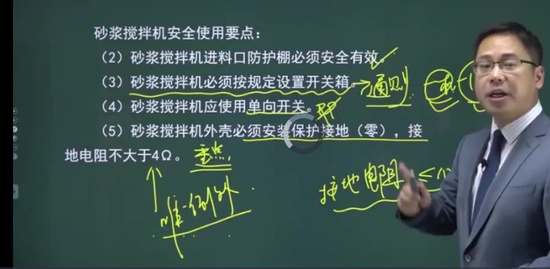 砂浆搅拌机安全使用要点：
（2）砂浆搅拌机进料口防护棚必须安全有效。
（3）砂浆搅拌机必须按规定设置开关箱。 通则
（4）砂浆搅拌机应使用单向开关。
（5）砂浆搅拌机外壳必须安装保护接地（零），接
地电阻不大于4Ω。 重点
唯一例外
接地电阻 ≤